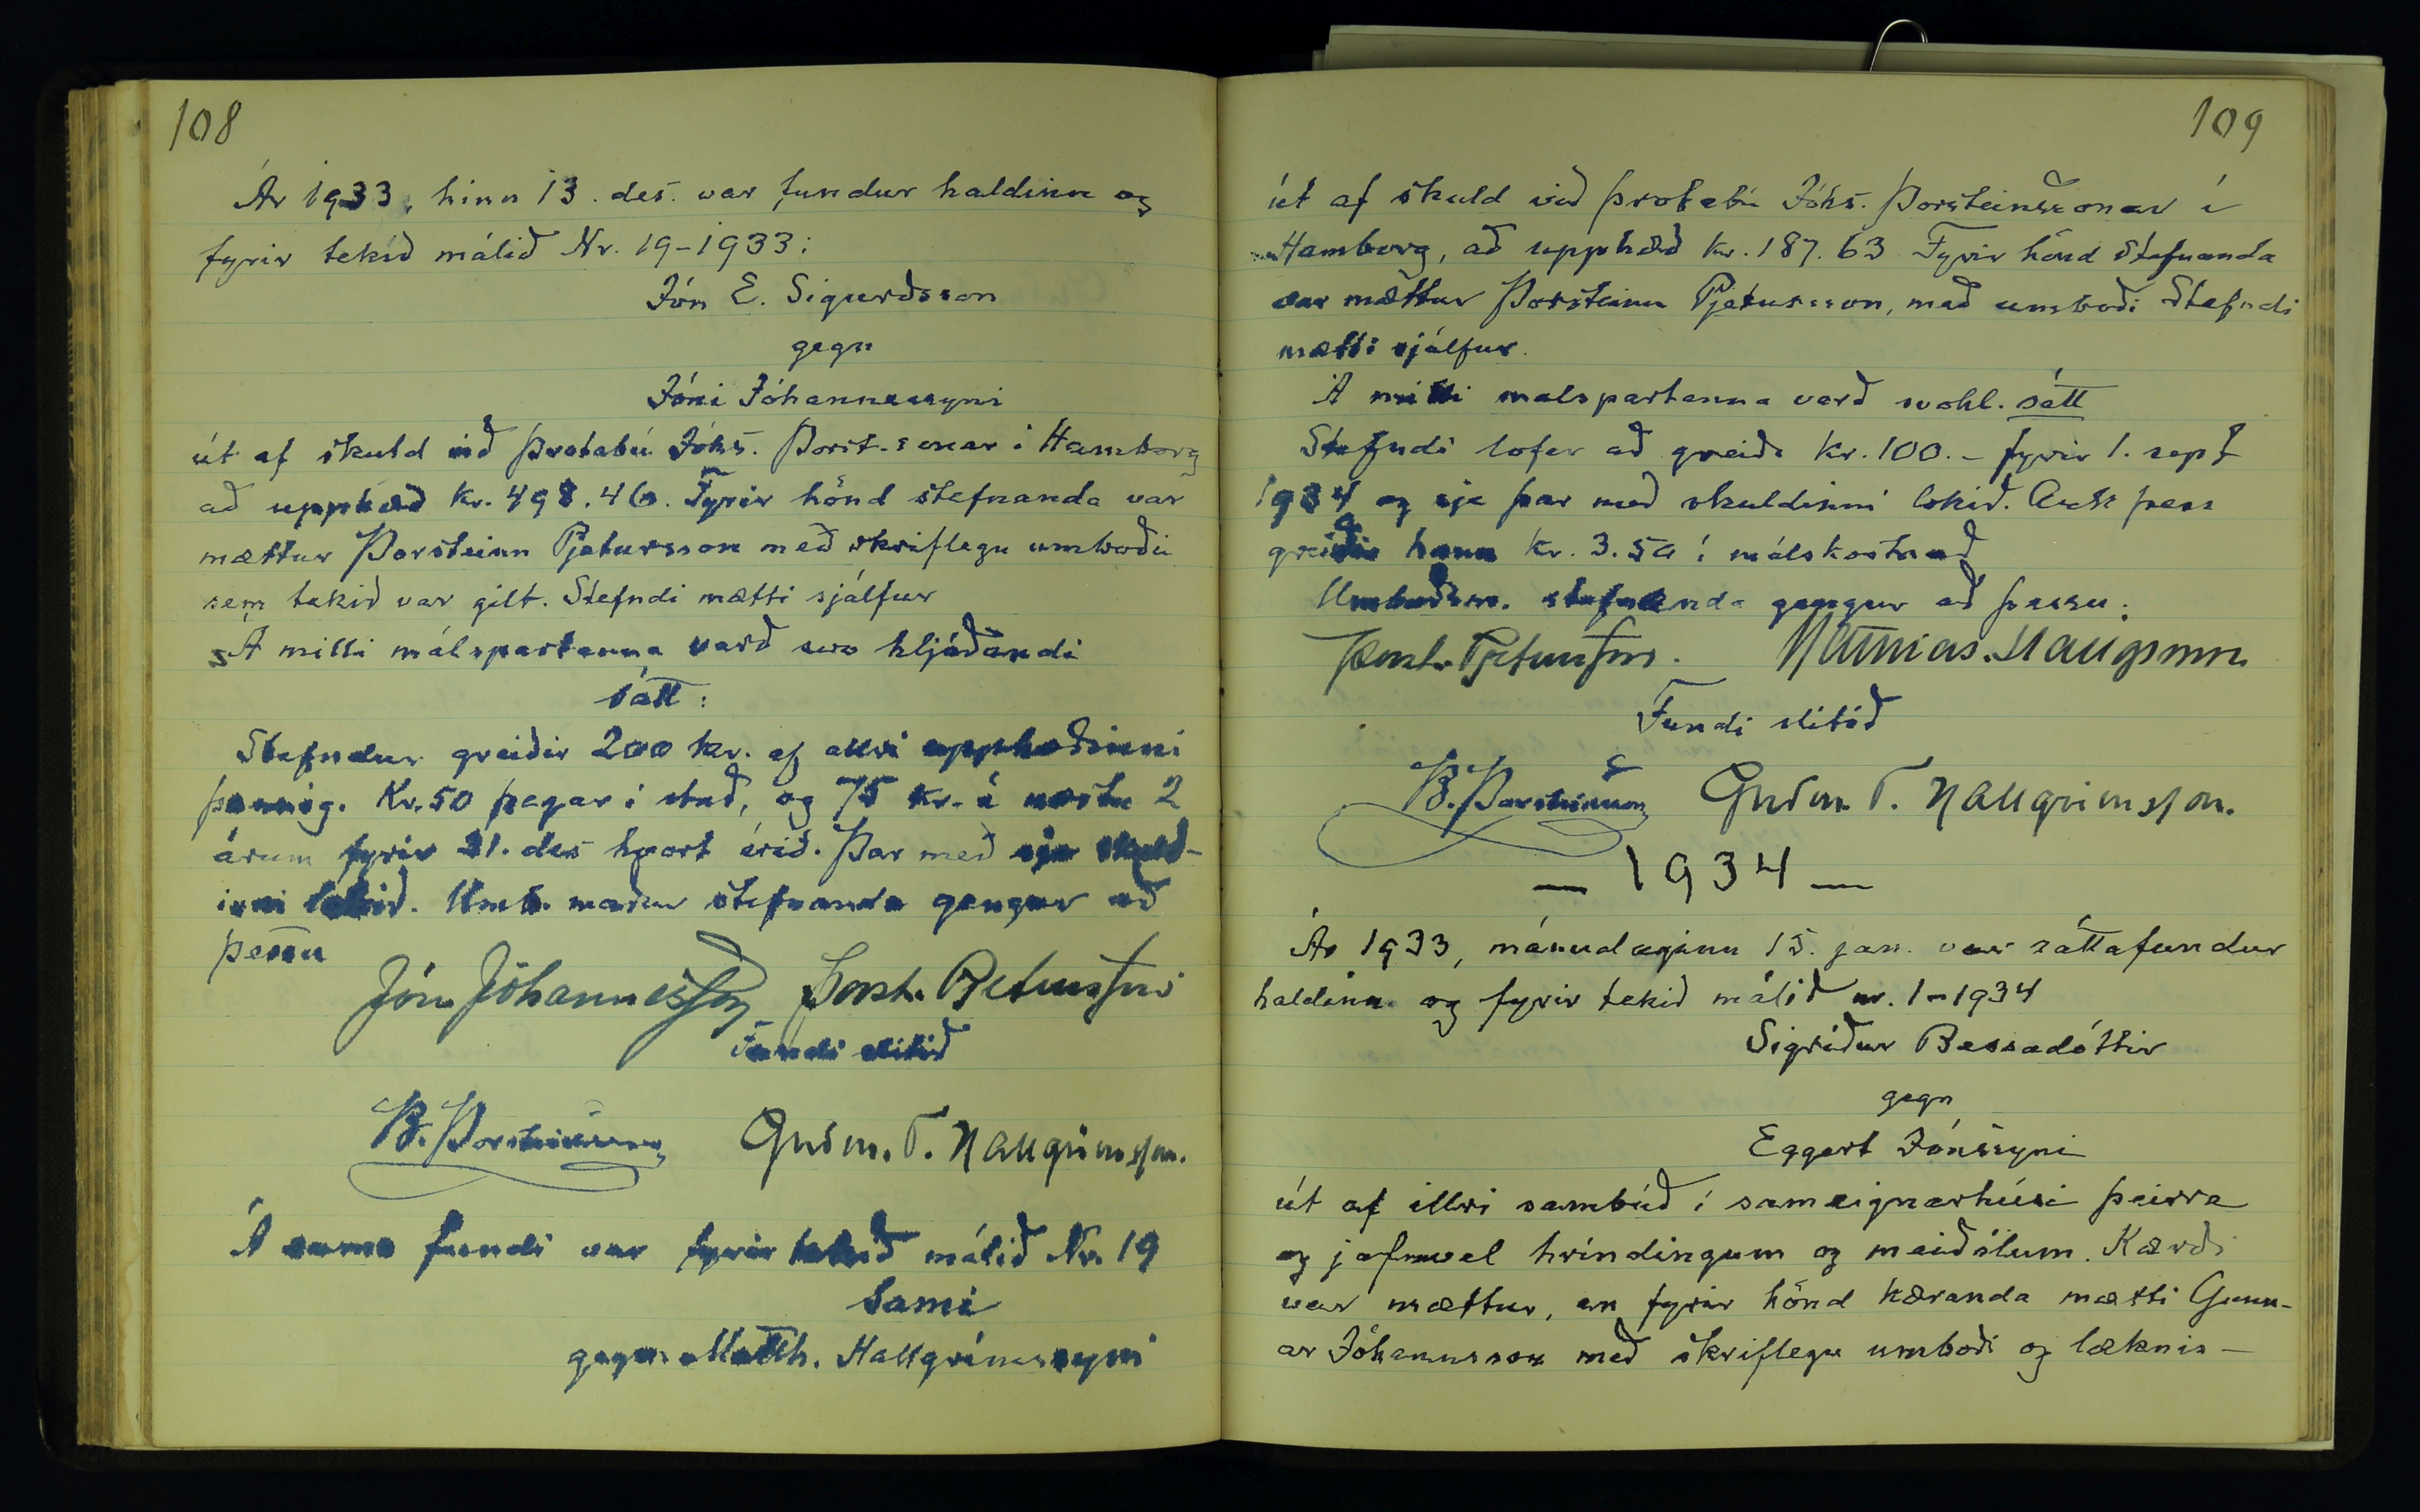 108
Ár 1933, hinn 13. des. var fundur haldinn og
fyrir tekið málið Nr. 19-1933:
Jón E. Sigurðsson
gegn
Jóni Jóhannessyni
út af skuld við þrotabú Jóhs. Þorst.sonar í Hamborg
að upphæð kr. 498.46. Fyrir hönd stefnanda var
mættur Þorsteinn Pjetursson með skriflegu umboði
sem tekið var gilt. Stefndi mætti sjálfur
Á milli málspartanna varð svo hljóðandi
sátt:
Stefndur greiðir 200 kr. af allri upphæðinni
þannig. Kr. 50 þegar í stað, og 75 kr. á næstu 2
árum fyrir 31. des hvort árið. Þar með sje skuld-
inni lokið. Umb. maður stefnanda gengur að
þessu
Jón Jóhannesson Þorst. Pjetursson
Fundi slitið
B. Þorsteinsson Guðm. T. Hallgrímsson.
Á sama fundi var fyrir tekið málið Nr. 19
Sami
gegn Matth. Hallgrímssyni
109
út af skuld við þrotabú Jóhs. Þorsteinssonar í
Hamborg, að upphæð kr. 187.63 Fyrir hönd Stefnanda
var mættur Þorsteinn Pjetursson, með umboði Stefndi
mætti sjálfur.
Á milli malspartanna varð svohl. sátt
Stefndi lofar að greiða kr. 100.- fyrir 1. sept
1934 og sje þar með skuldinni lokið. Auk þess
greiði hann kr. 3.50 í málskostnað
Umboðsm. stefnanda gengur að þessu.
Þorst. Pjetursson. Matthias Hallgrímsson
Fundi slitið
B. Þorsteinsson Guðm. T. Hallgrímsson.
— 1934 —
Ár 1933, mánudaginn 15. jan. var sáttafundur
haldinn og fyrir tekið málið nr. 1-1934
Sigríður Bessadóttir
gegn
Eggert Jónssyni
út af illri sambúð í sameignarhúsi þeirra
og jafnvel hrindingum og meiðslum. Kærði
var mættur, en fyrir hönd kæranda mætti Gunn-
ar Jóhannsson með skriflegu umboði og læknis-